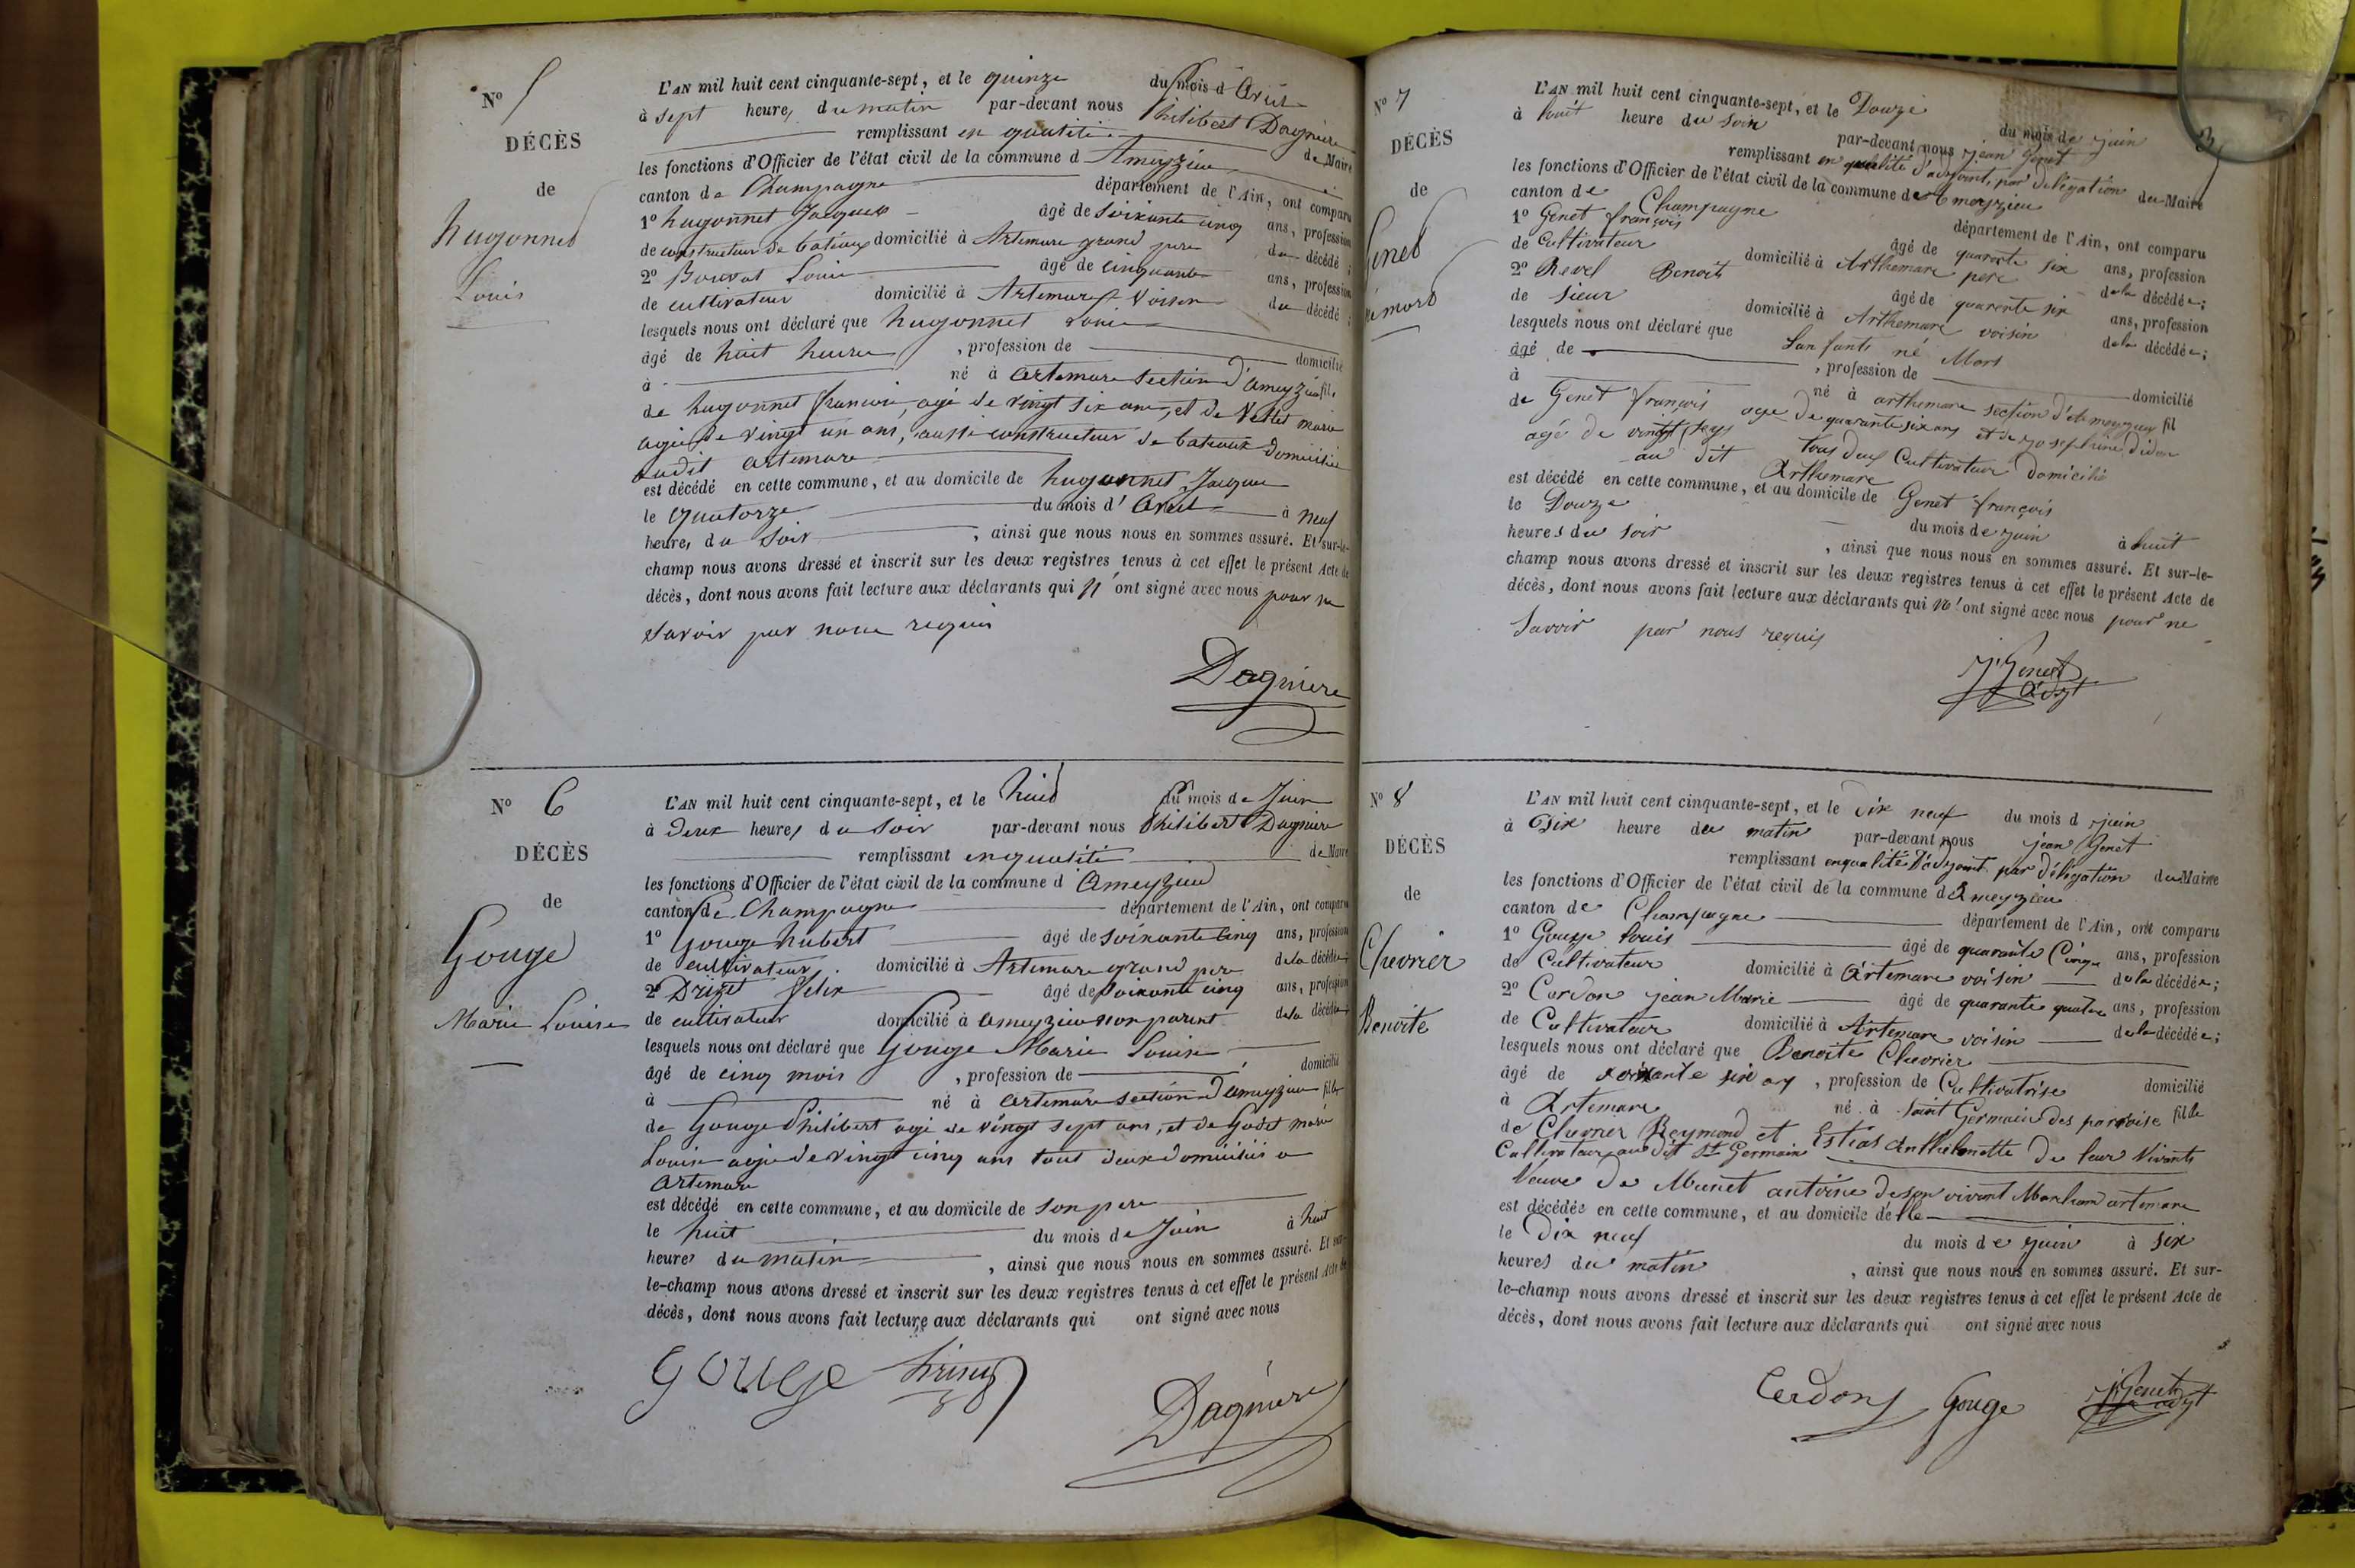 Nº 5
DÉCÈS
de
hugonnet
Louis
L'AN mil huit cent cinquante-sept, et le quinze du mois d'Avril
à sept heures du matin par-devant nous Philibert Dagniere
remplissant en qualité de Maire
les fonctions d'Officier de l'état civil de la commune d Ameyzieu
canton de Champagne département de l'Ain, ont comparu
1º hugonnet Jacques âgé de soixante cinq ans, profession
de constructeur de bateaux domicilié à Artemare grand pere du décédé;
2º Bouvat Louis âgé de cinquante ans, profession
de cultivateur domicilié à Artemare voisin du décédé;
lesquels nous ont déclaré que hugonnet Louis
âgé de huit heures, profession de domicilié
à né à Artemare section d'ameyzieu fils
de hugonnet francois, agé de vingt six ans, et de Vettet marie
agée de vingt un ans, aussi constructeur de bateaux domiciliés
audit artemare
est décédé en cette commune, et au domicile de hugonnet Jacques
le Quatorze du mois d'Avril à neuf
heures du soir, ainsi que nous nous en sommes assuré. Et sur-le-
champ nous avons dressé et inscrit sur les deux registres tenus à cet effet le présent Acte de
décès, dont nous avons fait lecture aux déclarants qui n'ont signé avec nous pour ne
savoir par nous requis
Dagniere
Nº 6
DÉCÈS
de
Gouge
Marie Louise
L'AN mil huit cent cinquante-sept, et le huit du mois de Juin
à deux heures du soir par-devant nous Philibert Dagniere
remplissant en qualité de Maire
les fonctions d'Officier de l'état civil de la commune d Ameyzieu
canton de Champagne département de l'Ain, ont comparu
1º Gouge hubert âgé de soixante cinq ans, profession
de cultivateur domicilié à Artemare grand pere de la décédée;
2º Drizet felix âgé de soixante cinq ans, profession
de cultivateur domicilié à ameyzieu non parent de la décédée
lesquels nous ont déclaré que Gouge Marie Louise
âgé de cinq mois, profession de domicilié
à né à Artemare section d'ameyzieu fille
de Gouge Philibert agé de vingt sept ans, et de Godet marie
Louise agée de vingt cinq ans tout deux domiciliés a
Artemare
est décédé en cette commune, et au domicile de son pere
le huit du mois de Juin à huit
heures du matin, ainsi que nous nous en sommes assuré. Et sur-
le-champ nous avons dressé et inscrit sur les deux registres tenus à cet effet le présent Acte de
décès, dont nous avons fait lecture aux déclarants qui ont signé avec nous
Gouge
Dagniere
Nº 7
DÉCÈS
de
Genet
né mort
L'AN mil huit cent cinquante-sept, et le Douze du mois de juin
à huit heure du soir par-devant nous jean Genet
remplissant en qualité d'adjoint, par délégation du Maire
les fonctions d'Officier de l'état civil de la commune de Ameyzieu
canton de Champagne département de l'Ain, ont comparu
1º Genet françois âgé de quarante six ans, profession
de Cultivateur domicilié à Arthemare pere de la décédée;
2º Revel Benoit âgé de quarante six ans, profession
de sieur domicilié à Arthemare voisin de la décédée;
lesquels nous ont déclaré que L'anfant né Mort
âgé de, profession de domicilié
à né à arthemare section d'ameyzieu fil
de Genet françois age de quarante six ans et de josephine Didon
agé de vingt tous deux Cultivateur domicilié
au dit Arthemare
est décédé en cette commune, et au domicile de Genet françois
le Douze du mois de juin à huit
heures du soir, ainsi que nous nous en sommes assuré. Et sur-le-
champ nous avons dressé et inscrit sur les deux registres tenus à cet effet le présent Acte de
décès, dont nous avons fait lecture aux déclarants qui n'ont signé avec nous pour ne
savoir par nous requis
J. Genet
adjt
Nº 8
DÉCÈS
de
Chevrier
Benoite
L'AN mil huit cent cinquante-sept, et le dix neuf du mois d juin
à Dix heure du matin par-devant nous jean Genet
remplissant en qualité D'adjoint par délégation du Maire
les fonctions d'Officier de l'état civil de la commune d Ameyzieu
canton de Champagne département de l'Ain, ont comparu
1º Gouge Louis âgé de quarante Cinque ans, profession
de Cultivateur domicilié à Artemare voisin de la décédée;
2º Cerdon jean Marie âgé de quarante quatre ans, profession
de Cultivateur domicilié à Artemare voisin de la décédée;
lesquels nous ont déclaré que Benoite Chevrier
âgé de soixante six an, profession de Cultivatrise domicilié
à Artemare né à Saint Germain des paroise fille
de Chevrier Reymond et Estias Anthelmette de leur Vivants
Cultivateur au dit St Germain
Veuve de Munet antoine de son vivant Marchand artemare
est décédée en cette commune, et au domicile d'elle
le Dix neuf du mois de juin à six
heures du matin, ainsi que nous nous en sommes assuré. Et sur-
le-champ nous avons dressé et inscrit sur les deux registres tenus à cet effet le présent Acte de
décès, dont nous avons fait lecture aux déclarants qui ont signé avec nous
Cerdon Gouge J. Genet adjt